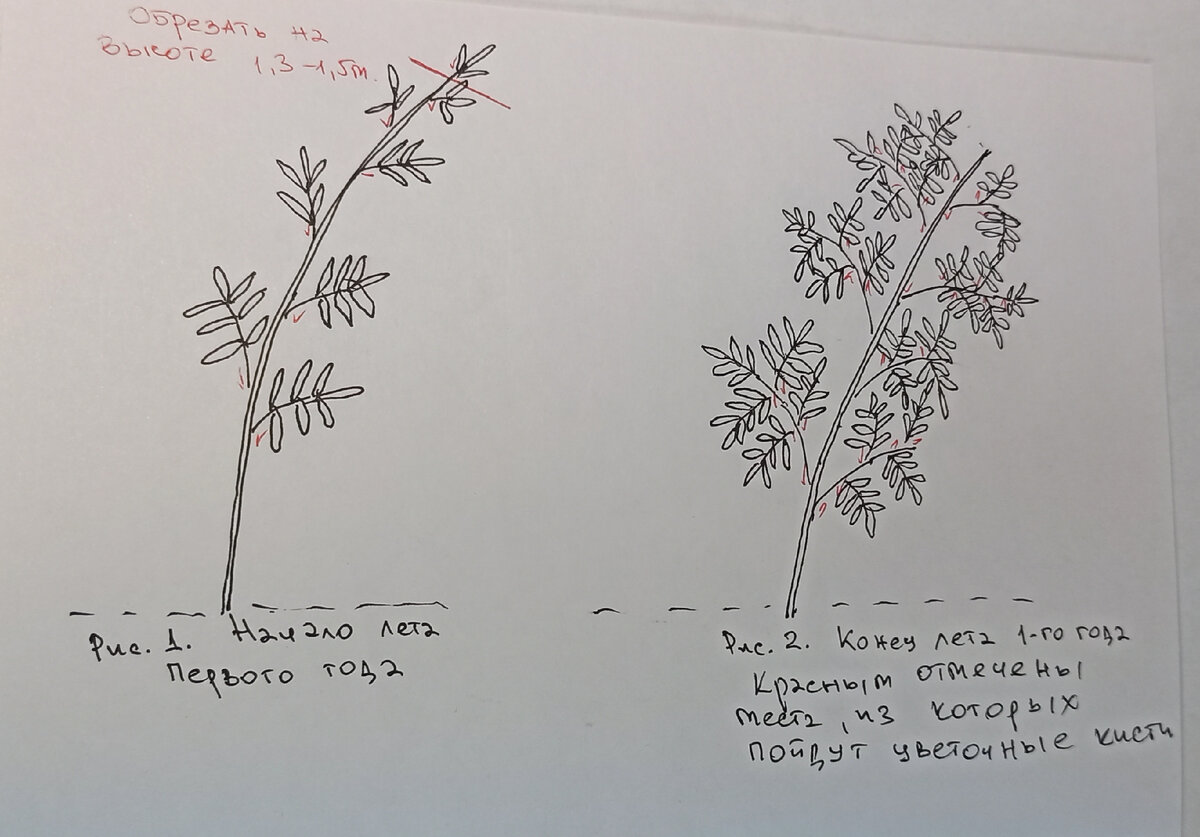 Обрезать на
высоте 1,3-1,5м.
Рис. 1. Начало лета
Первого года
Рис. 2. Конец лета 1-го года
Красным отмечены
места, из которых
пойдут цветочные кисти